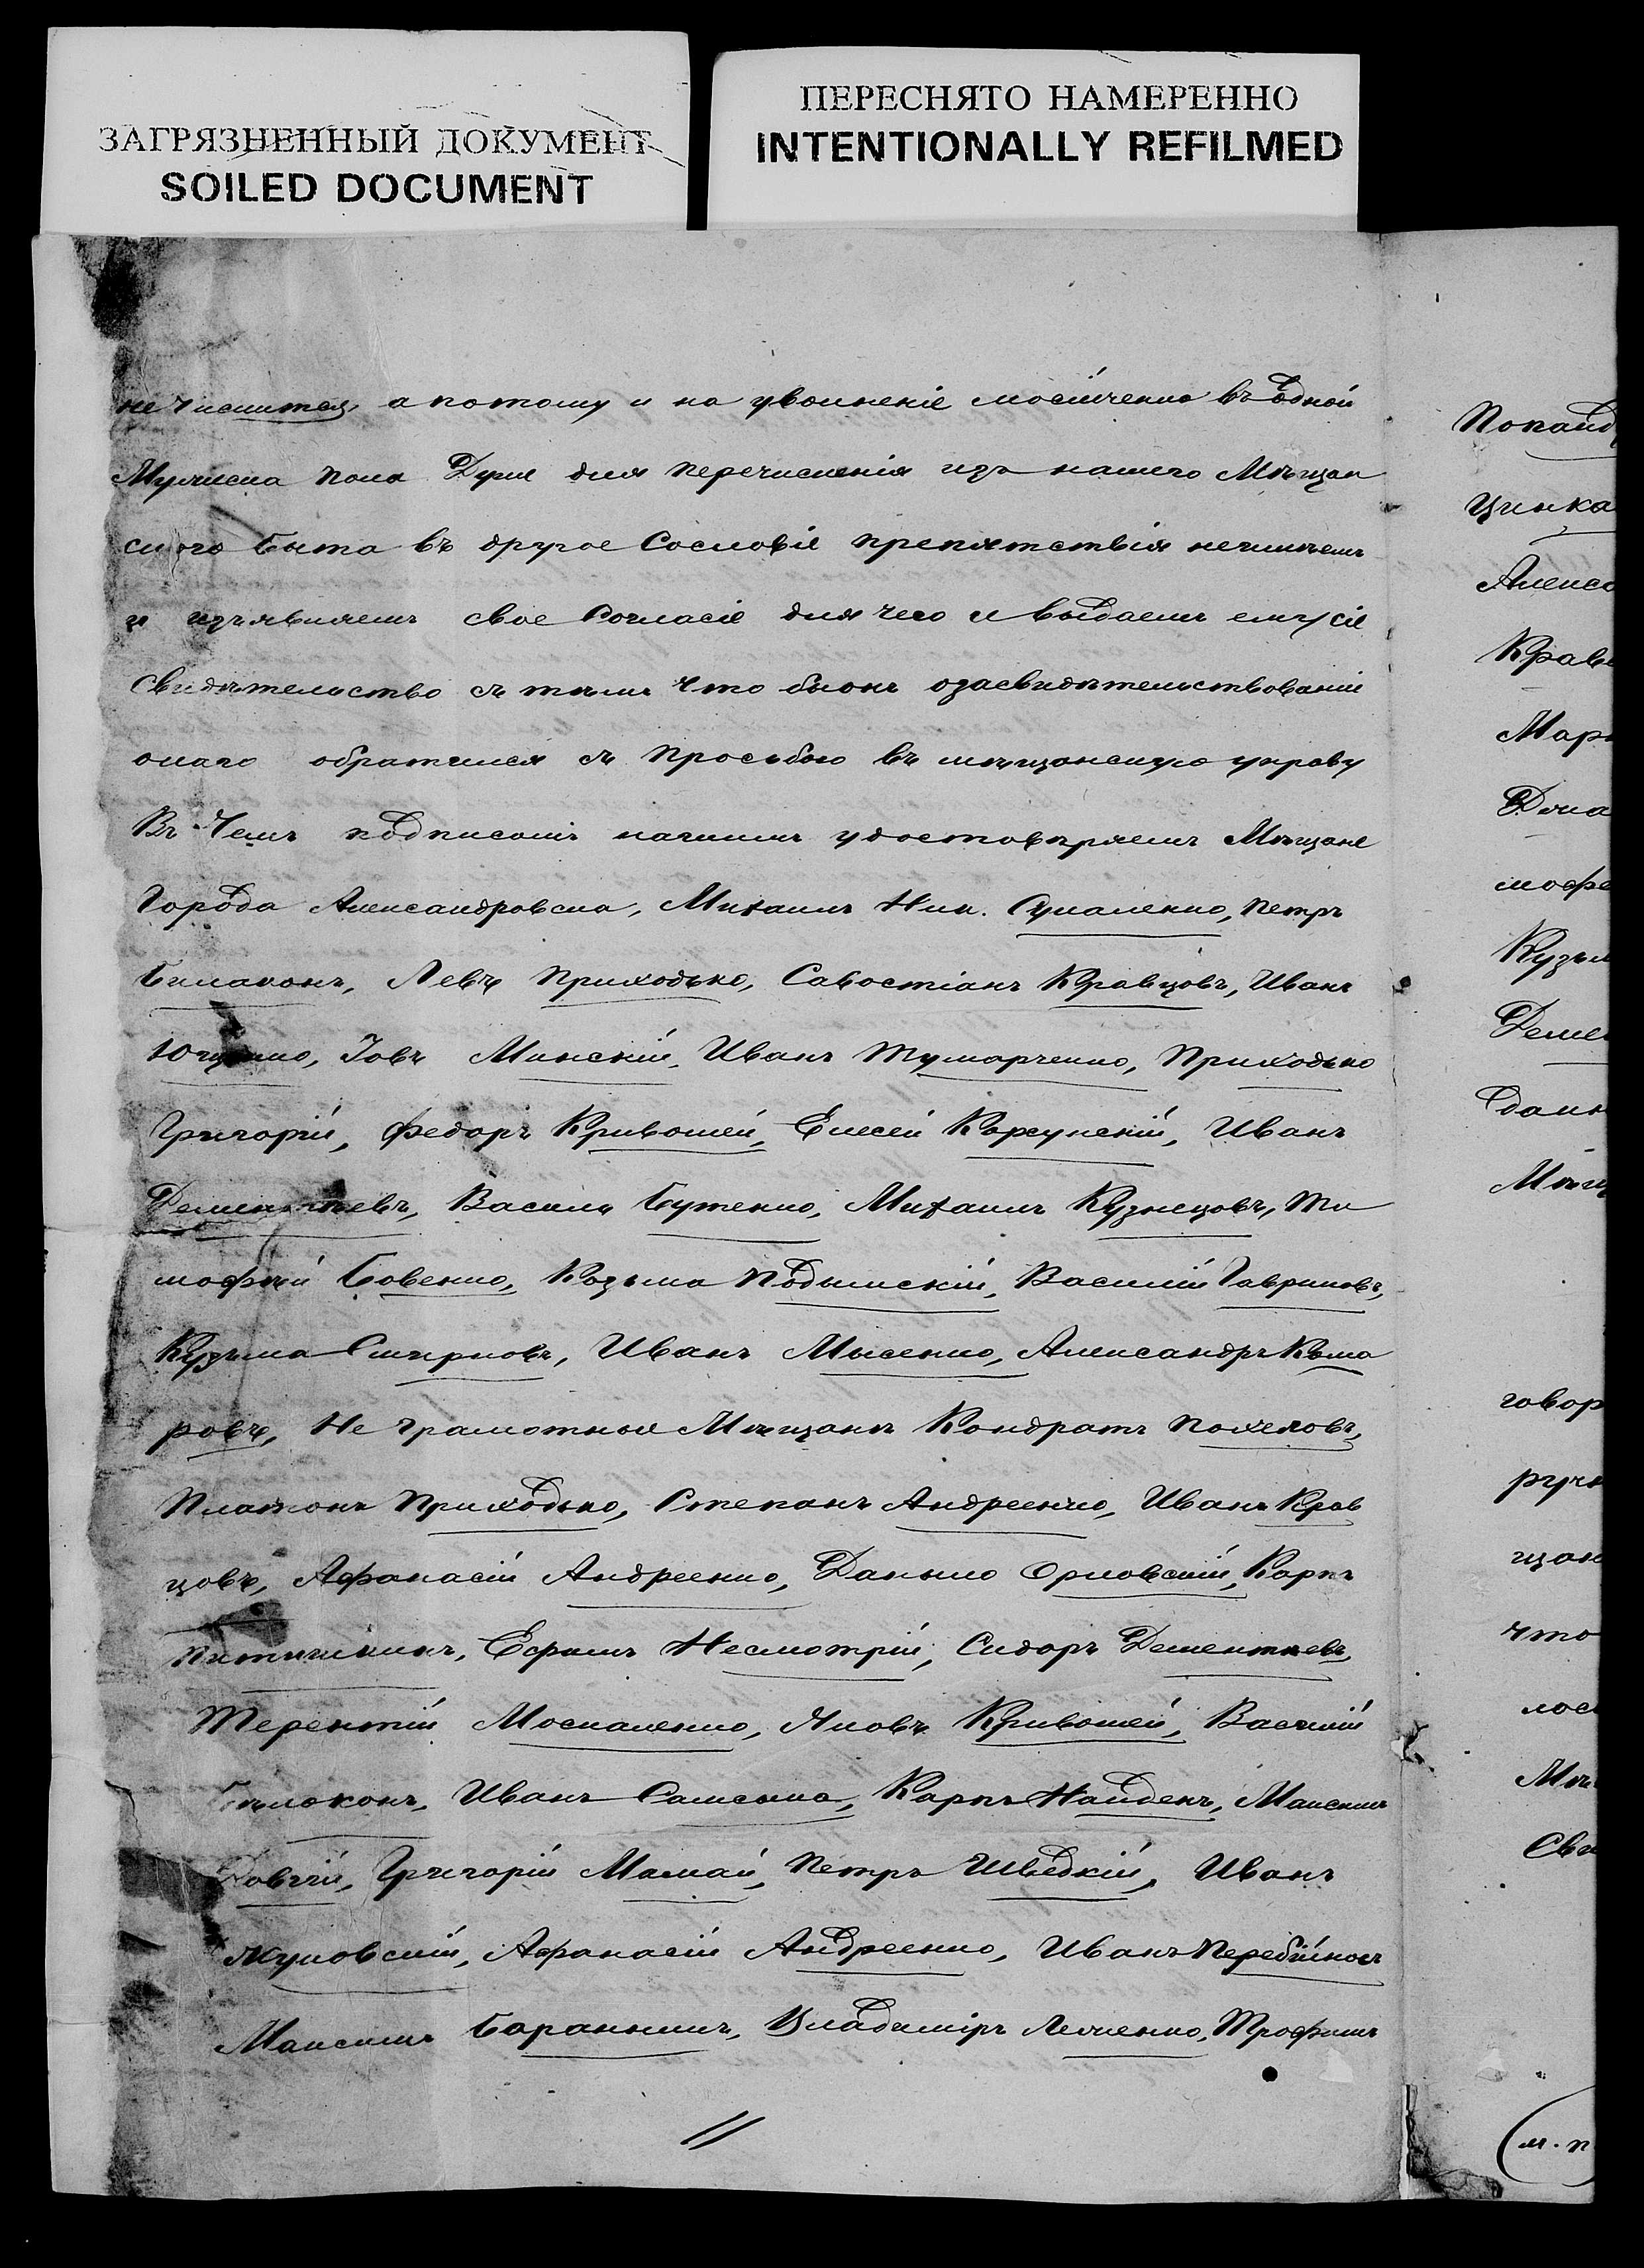 ЗАГРЯЗНЕННЫЙ ДОКУМЕНТ
SOILED DOCUMENT
ПЕРЕСНЯТО НАМЕРЕННО
INTENTIONALLY REFILMED
не числится, а потому и на уволненіе въ одной
Мужеска пола Души для перечисленія изъ нашего Мѣщан
скаго быта въ другое Сословіе препятствія нечинимъ
и изъявляемъ свое Согласіе для чего и выдаемъ ему сіе
Свидѣтельство съ тѣмъ что бы онъ озасвидѣтельствованіи
онаго обратился съ просьбою въ мѣщанскую управу
Въ Чемъ подписомъ нашимъ удостовѣряемъ Мѣщане
Города Александровска, Михаилъ Ник. Сукаленко, Петръ
Билаконъ, Левъ Приходько, Савостіанъ Кравцовъ, Иванъ
Іовъ Минскій, Иванъ Тумарченко, Приходько
Григорій, Федоръ Кривошей, Елисей Корсунскій, Иванъ
Дементьевъ, Василь Бутенко, Михаилъ Кузнецовъ, Ти
мофѣй Бовенко, Козьма Подымскій, Василій Гавриловъ,
Кузьма Смирновъ, Иванъ Мысенко, Александръ Кома
ровъ, Не грамотныя Мѣщанъ Кондратъ
Платонъ Приходько, Степанъ Андреенко, Иванъ Крав
цовъ, Афанасій Андреенко, Данило Орловскій, Карпъ
Ефимъ Несмотрій, Сидоръ Дементьевъ,
Терентій Москаленко, Яковъ Кривошей, Василій
Бѣлоконъ, Иванъ Карпъ Найденъ, Максимъ
Довгій, Григорій Мамай, Петръ Шведкій, Иванъ
Жуковскій, Афанасій Андреенко, Иванъ Перебійнось
Максимъ Баранникъ, Владиміръ Трофимъ
Попанд
цинка
Алекса
Крав
Мар
мофе
Кузьм
Демен
дани
Мѣщ
говор
руч
щан
что
Мѣ
Сви
(м. п